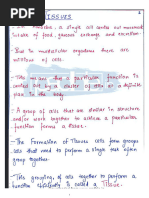 TISSUES
a single cell carries out movement
intake of food, gaseous exchange and excretion
But in multicellular organisms there are
millions of cells.
This means that a particular function is
carried out by a cluster of cells at a definite
place in the body.
A group of cells that are similar in structure
and/or work together to achieve a particular
function forms a tissue.
The Formation of Tissues gets form groups
that need to perform a single task often
group together.
This grouping of cells together to perform a
function efficiently is called a Tissue.